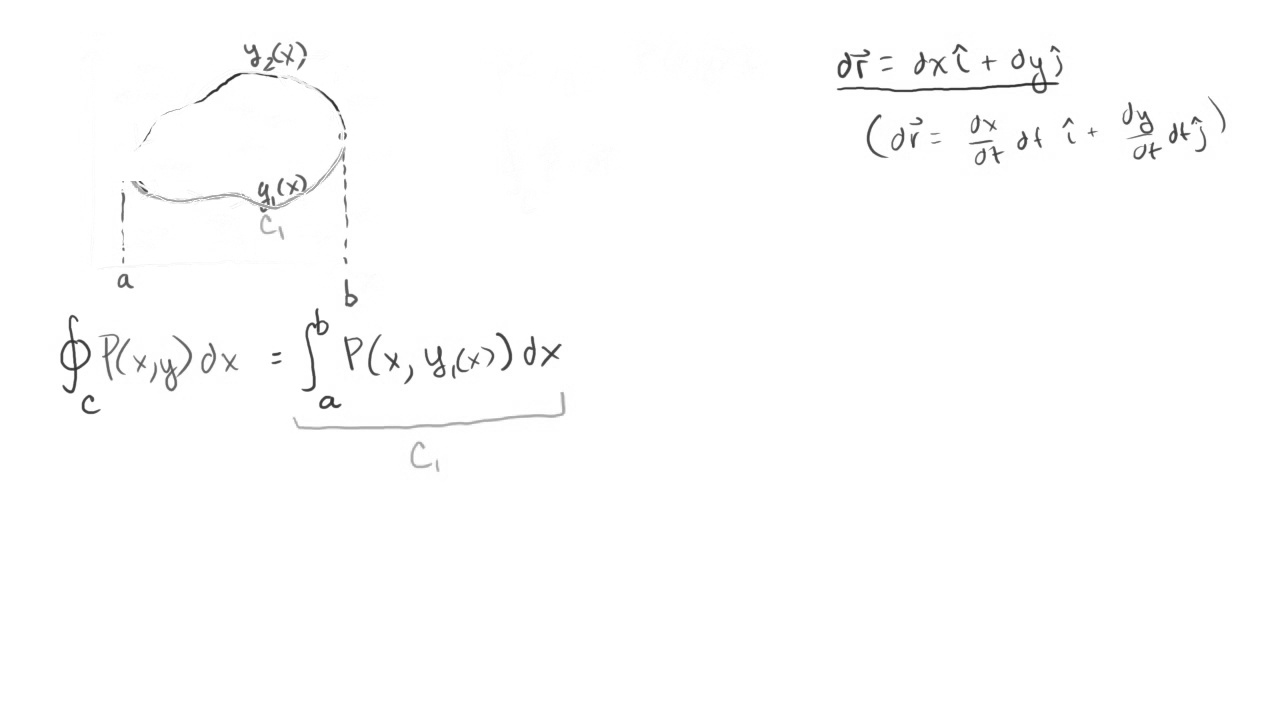 y₂(x)
y₁(x)
C₁
a
b
∮_C P(x,y) dx = ∫_a^b P(x, y₁(x)) dx
C₁
dr⃗ = dx î + dy ĵ
(dr⃗ = dx/dt dt î + dy/dt dt ĵ)